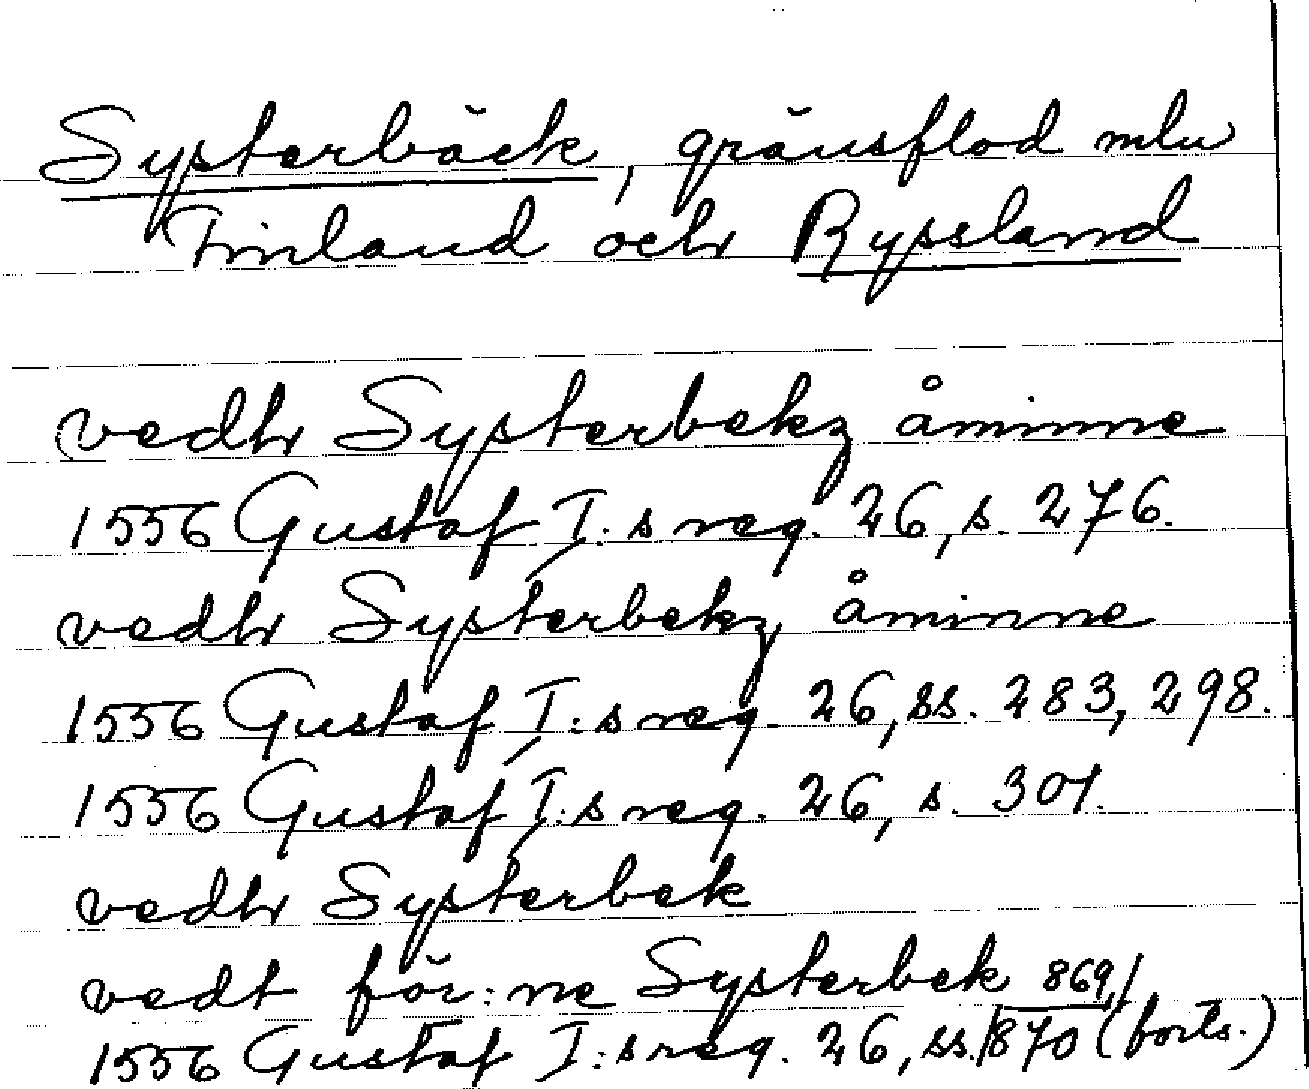 Systerbäck, gränsflod mln
Finland och Ryssland
vedh Systerbekz åminne
1556 Gustaf I:s reg. 26, s. 276.
vedh Systerbekz åminne
1556 Gustaf I:s reg. 26, ss. 283, 298.
1556 Gustaf I:s reg. 26, s. 301.
vedh Systerbek
vedt för:ne Systerbek 869,
1556 Gustaf I:s reg. 26, ss. 870 (forts.)